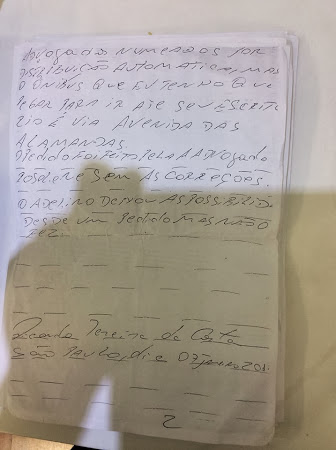 ADVOGADOS NUMEADOS POR
DISTRIBUIÇÃO AUTOMATICA, MAS
O ÔNIBUS QUE EU TENHO QUE
PEGAR PARA IR ATE SEU ESCRITÓ
RIO É VIA AVENIDA DAS
ALAMANDAS.
O PEDIDO FOI FEITO PELA ADVOGADA
ROSALENE SEM AS CORREÇÕES.
O ADELINO DEIXOU AS POSSIBILIDA
DES DE UM PEDIDO MAS NÃO
FEZ.
Teixeira da Costa
SÃO PAULO, dia 03
2